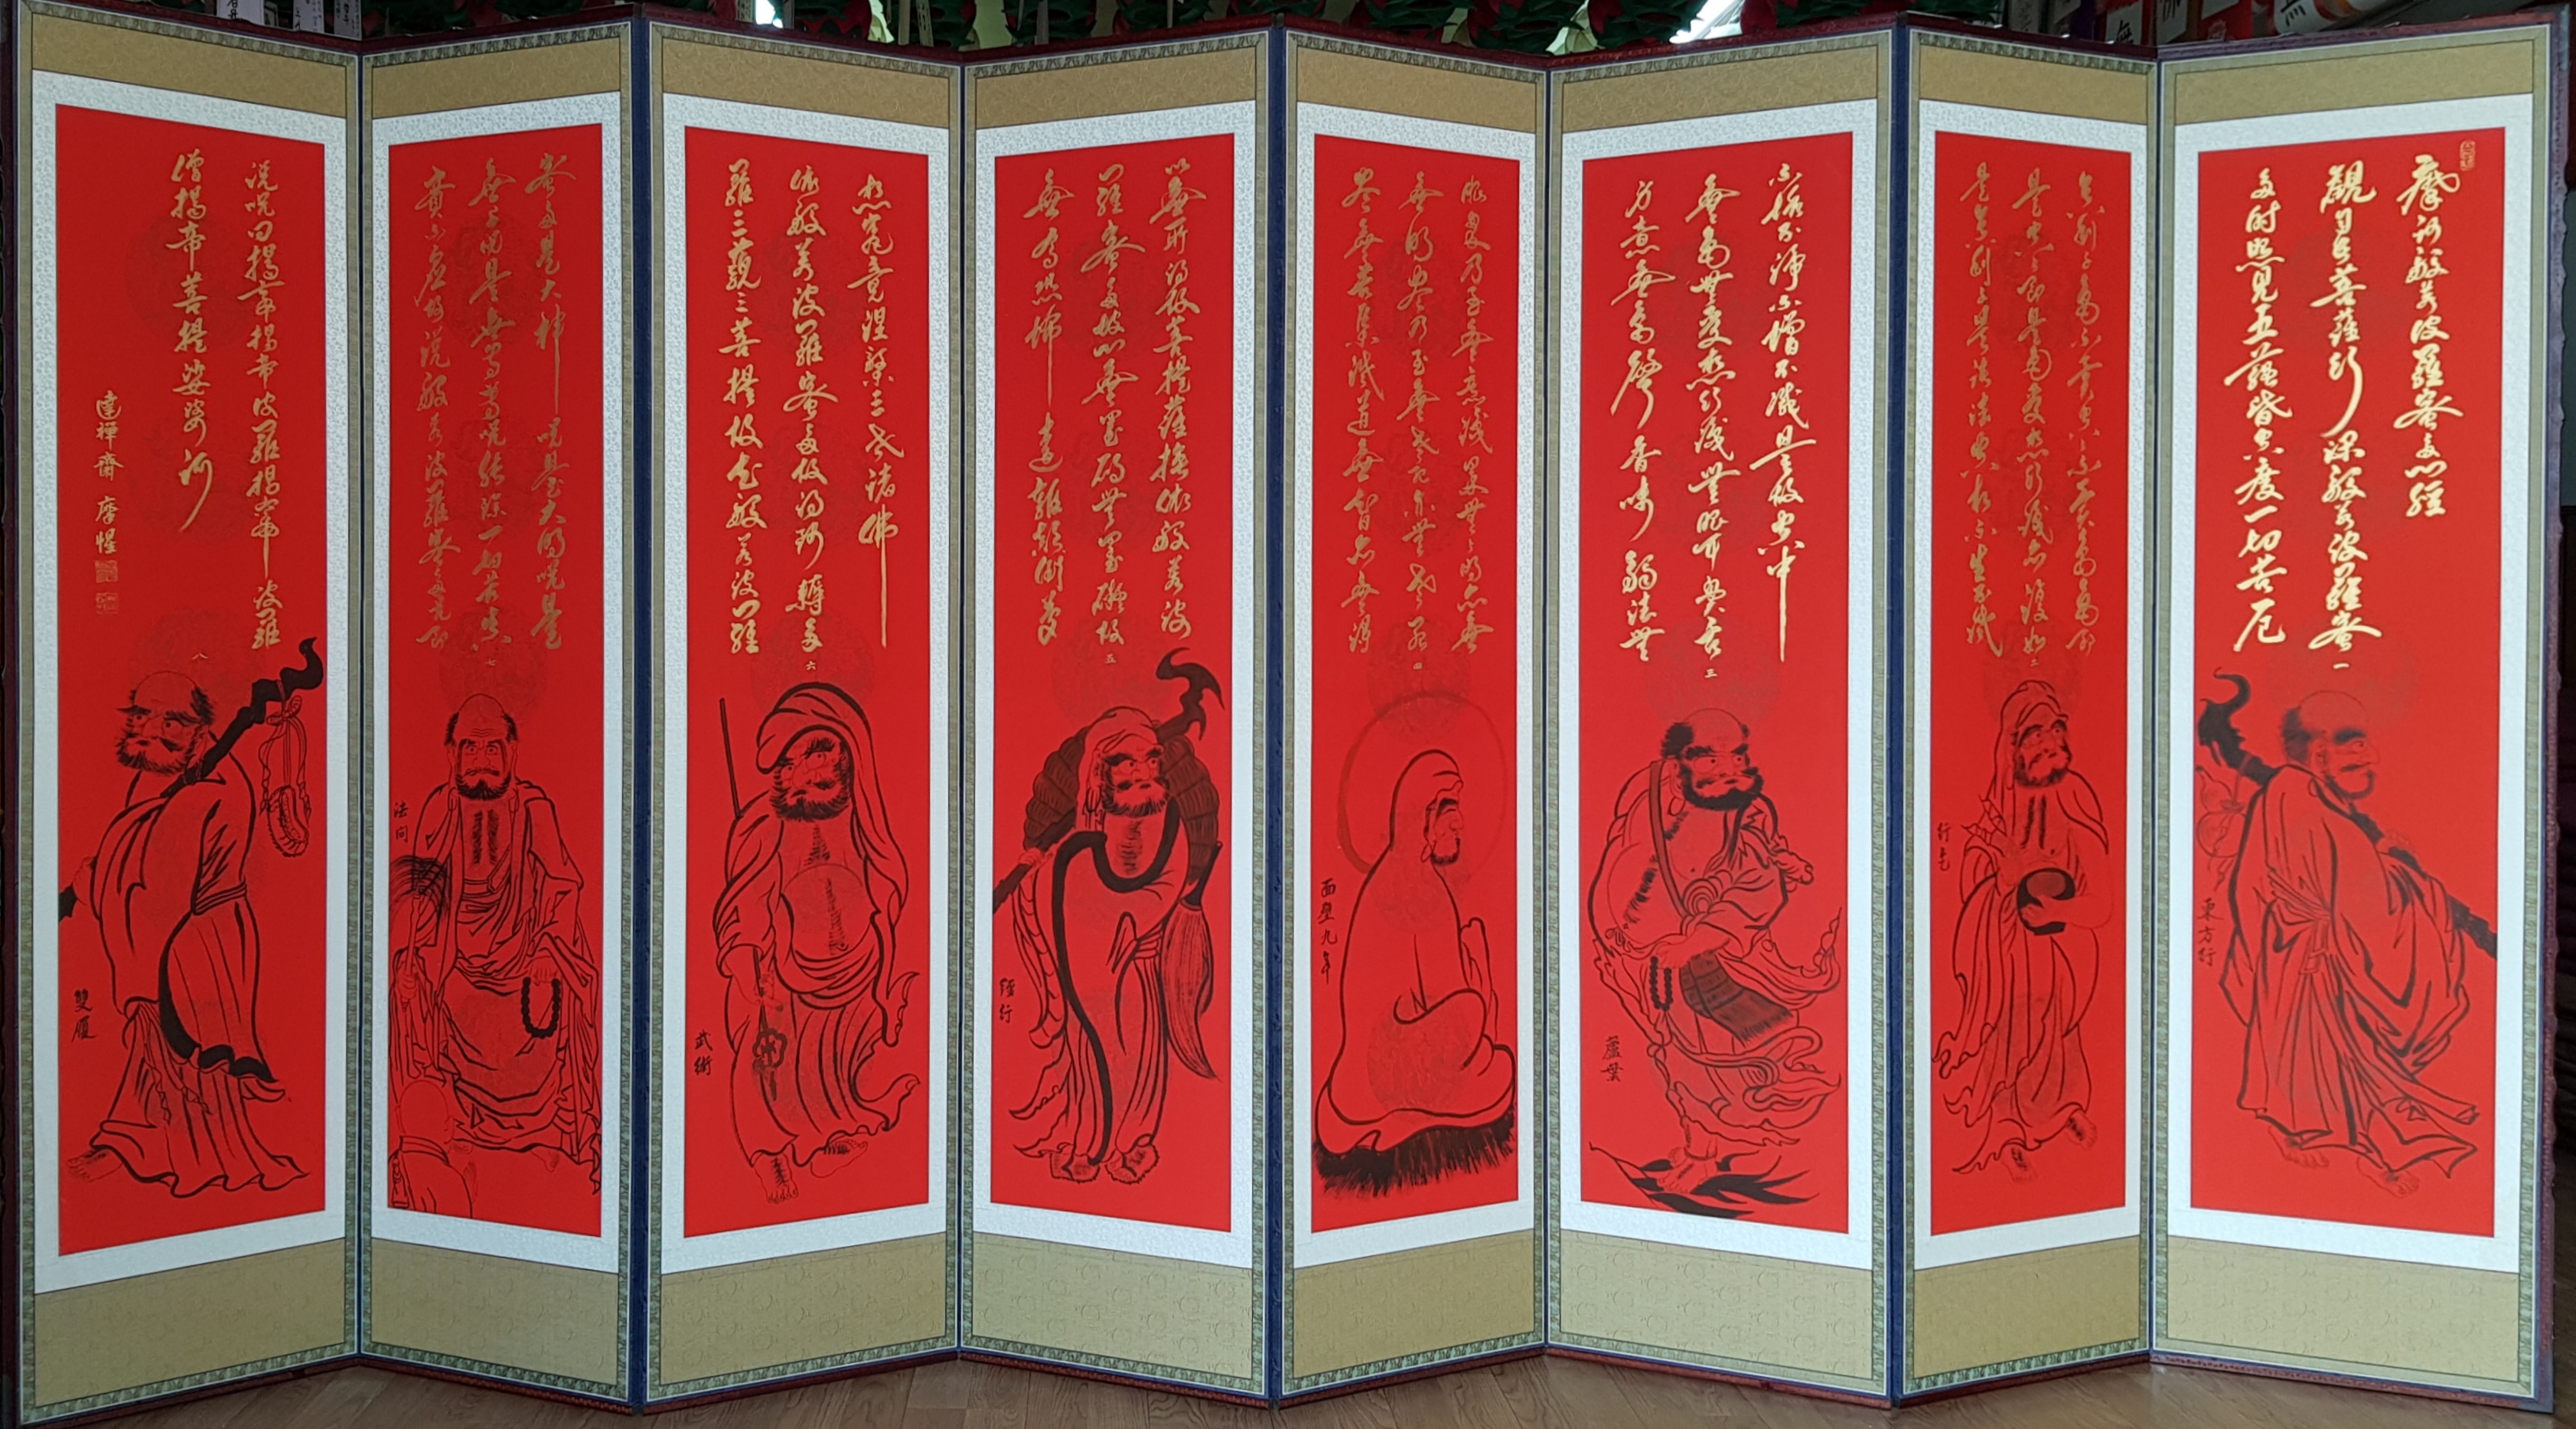 摩訶般若波羅蜜多心經
觀自在菩薩行深般若波羅蜜
多時照見五蘊皆空度一切苦厄
一
東方行
舍利子色不異空空不異色色卽
是空空卽是色受想行識亦復如
是舍利子是諸法空相不生不滅
二
行乞
不垢不淨不增不減是故空中
無色無受想行識無眼耳鼻舌
身意無色聲香味觸法無
三
蘆葉
眼界乃至無意識界無無明亦無
無明盡乃至無老死亦無老死
盡無苦集滅道無智亦無得
四
面壁九年
以無所得故菩提薩埵依般若波
羅蜜多故心無罣碍無罣礙故
無有恐怖遠離顛倒夢
五
經行
想究竟涅槃三世諸佛
依般若波羅蜜多故得阿耨多
羅三藐三菩提故知般若波羅
六
武術
蜜多是大神呪是大明呪是
無上呪是無等等呪能除一切苦眞
實不虛故說般若波羅蜜多呪卽
七
法問
說呪曰揭帝揭帝波羅揭帝波羅
僧揭帝菩提娑婆訶
達禪齋 摩惺
八
雙履